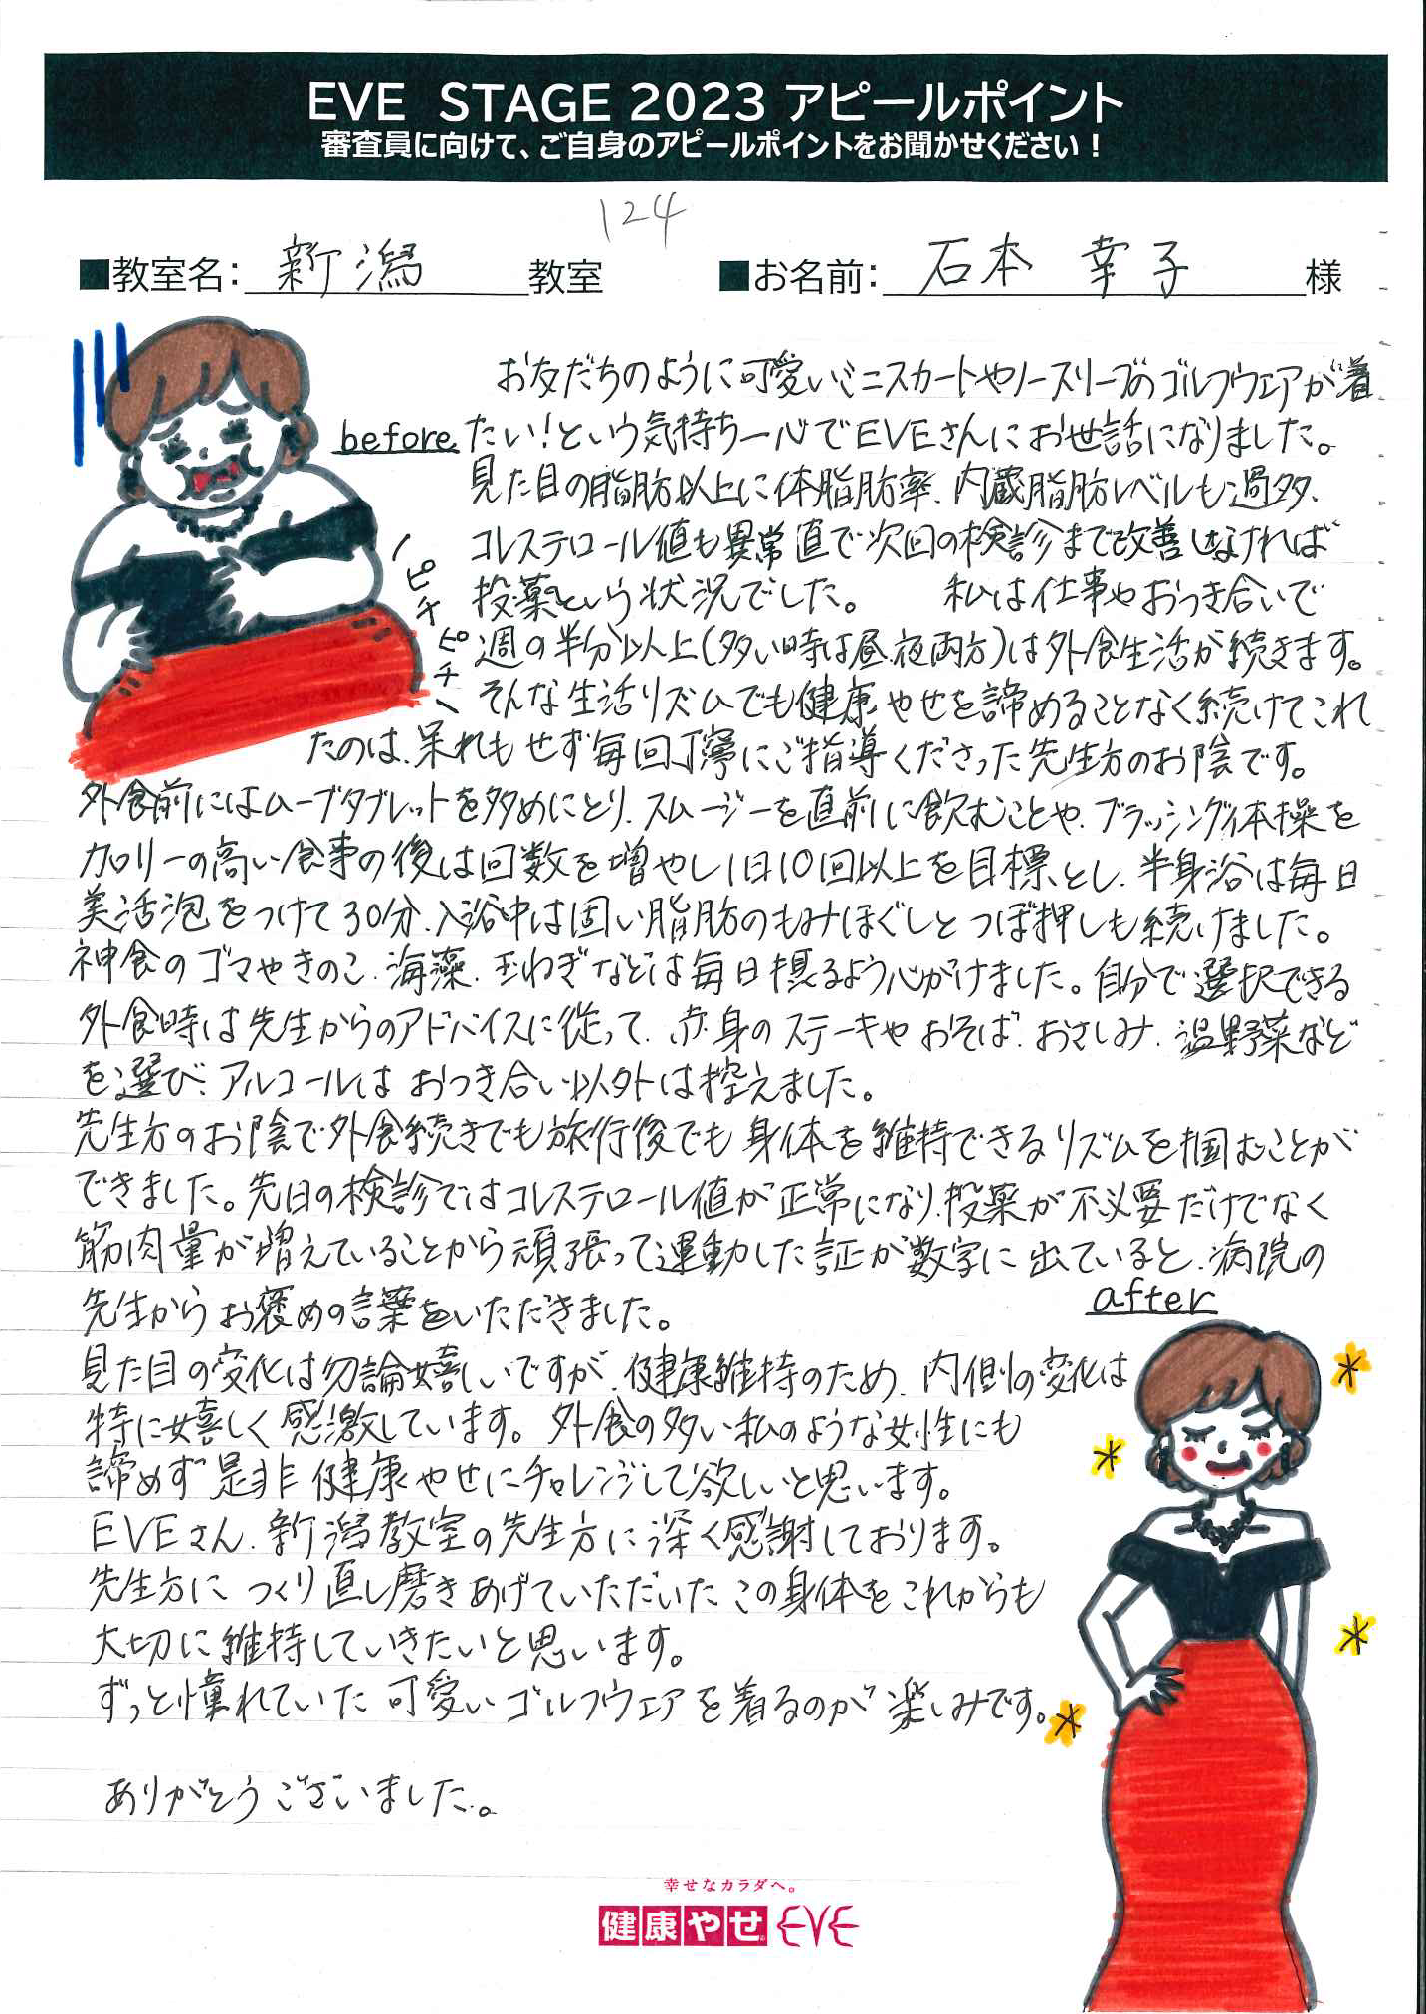 EVE STAGE 2023 アピールポイント
審査員に向けて、ご自身のアピールポイントをお聞かせください！
124
■教室名：新潟教室 ■お名前：石本 幸子 様
お友だちのように可愛いミニスカートやノースリーブのゴルフウェアが着
before たい！という気持ち一心でEVEさんにお世話になりました。
見た目の脂肪以上に体脂肪率、内蔵脂肪レベルも過多、
コレステロール値も異常値で次回の検診まで改善しなければ
投薬という状況でした。 私は仕事やおつき合いで
週の半分以上(多い時は昼、夜両方)は外食生活が続きます。
ピチピチ
そんな生活リズムでも健康やせを諦めることなく続けてこれ
たのは、呆れもせず毎回丁寧にご指導くださった先生方のお陰です。
外食前にはムーブタブレットを多めにとり、スムージーを直前に飲むことや、ブラッシング体操を
カロリーの高い食事の後は回数を増やし1日10回以上を目標とし、半身浴は毎日
美活泡をつけて30分、入浴中は固い脂肪のもみほぐしとつぼ押しも続けました。
神食のゴマやきのこ、海藻、玉ねぎなどは毎日摂るよう心がけました。自分で選択できる
外食時は先生からのアドバイスに従って、赤身のステーキやおそば、おさしみ、温野菜など
を選び、アルコールはおつき合い以外は控えました。
先生方のお陰で外食続きでも旅行後でも身体を維持できるリズムを掴むことが
できました。先日の検診ではコレステロール値が正常になり、投薬が不必要だけでなく
筋肉量が増えていることから頑張って運動した証が数字に出ていると、病院の
先生からお褒めの言葉をいただきました。
after
見た目の変化は勿論嬉しいですが、健康維持のため、内側の変化は
特に嬉しく感激しています。外食の多い私のような女性にも
諦めず是非健康やせにチャレンジして欲しいと思います。
EVEさん、新潟教室の先生方に深く感謝しております。
先生方につくり直し磨きあげていただいたこの身体をこれからも
大切に維持していきたいと思います。
ずっと憧れていた可愛いゴルフウェアを着るのが楽しみです。
ありがとうございました。
幸せなカラダへ。
健康やせ EVE